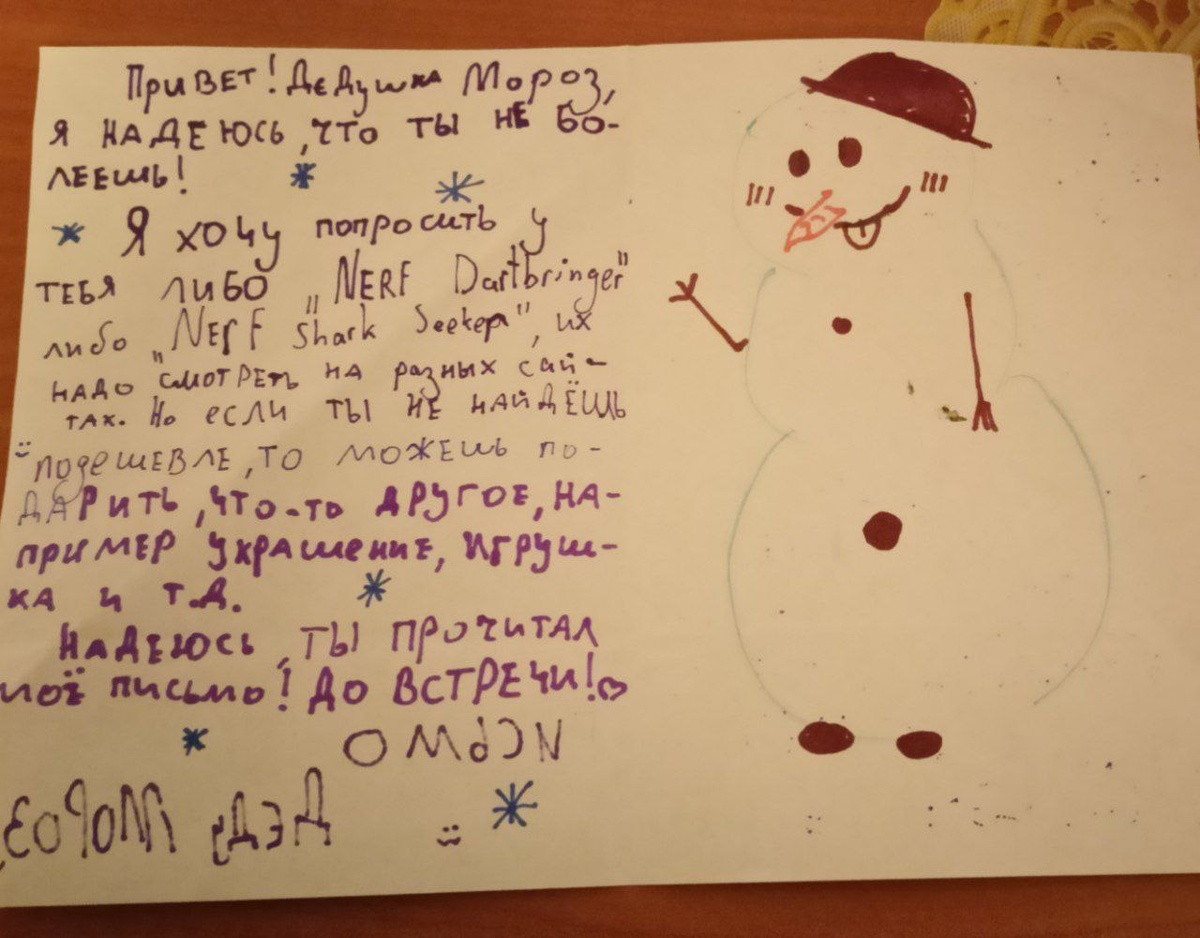 Привет! Дедушка Мороз,
я надеюсь, что ты не бо-
леешь!
Я хочу попросить у
тебя либо „NERF Dartbringer"
либо „Nerf Shark Seeker", их
надо смотреть на разных сай-
тах. Но если ты не найдёшь
подешевле, то можешь по-
дарить, что-то другое, на-
пример украшение, игруш-
ка и т.д.
Надеюсь, ты прочитал
моё письмо! До встречи!